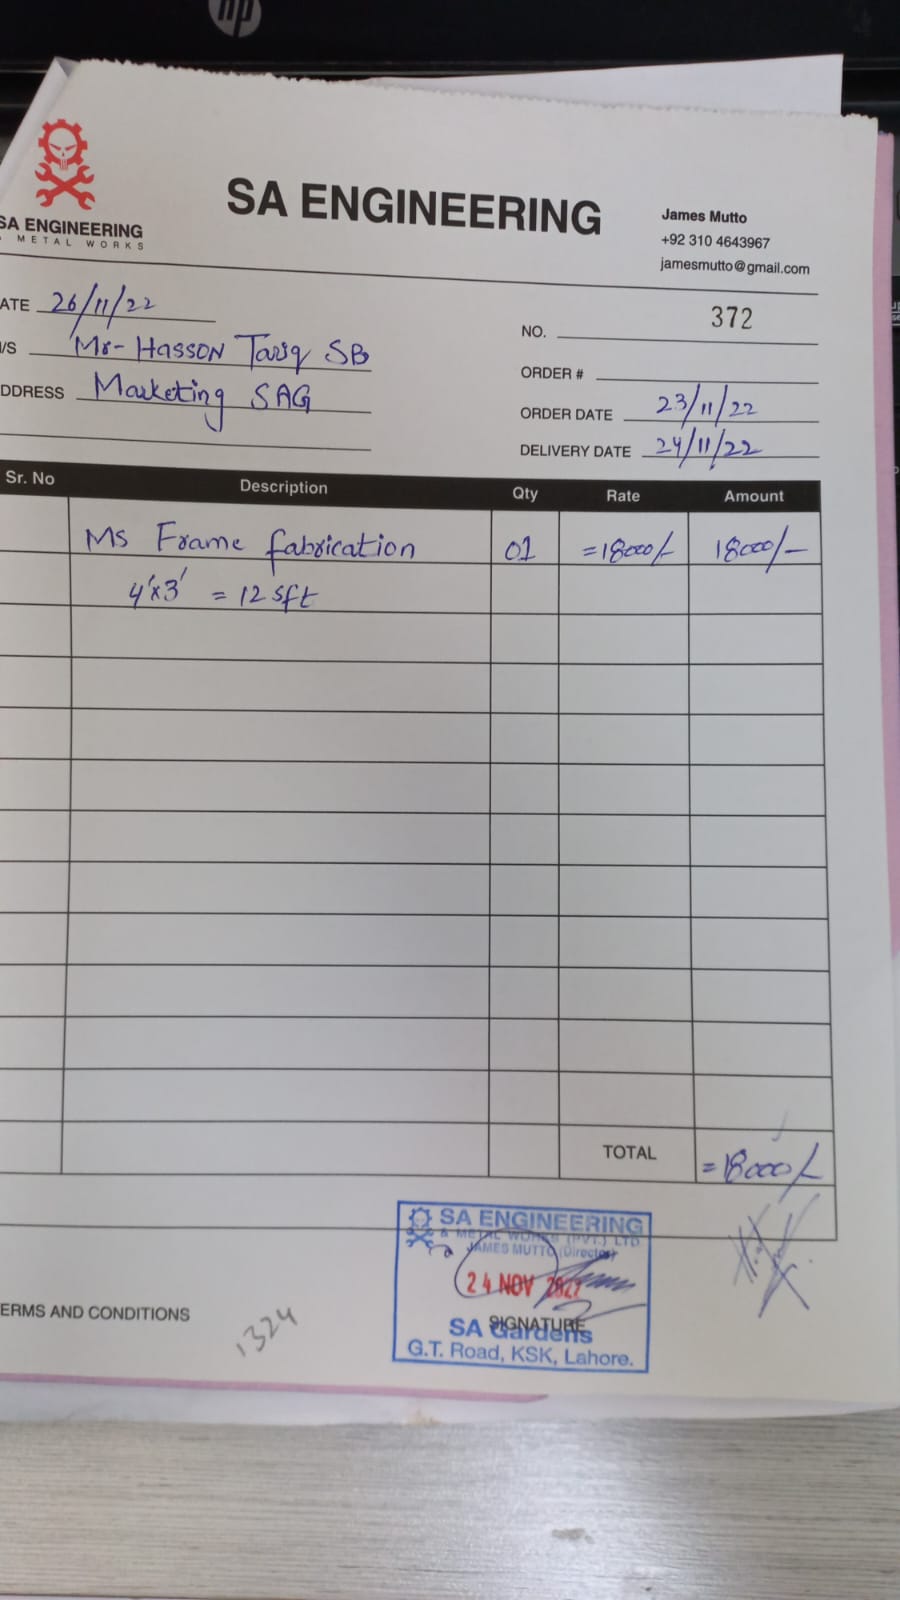 hp
SA ENGINEERING
& METAL WORKS
SA ENGINEERING
James Mutto
+92 310 4643967
jamesmutto@gmail.com
ATE 26/11/22
NO. 372
/S Mr- Hasson Tariq SB
ORDER #
DDRESS Marketing SAG
ORDER DATE 23/11/22
DELIVERY DATE 24/11/22
Sr. No Description Qty Rate Amount
Ms Frame fabrication 01 =18000/- 18000/-
4'x3' = 12 sft
TOTAL =18000/-
SA ENGINEERING
& METAL WORKS (PVT.) LTD
JAMES MUTTO (Director)
24 NOV 2022
SIGNATURE
SA Gardens
G.T. Road, KSK, Lahore.
ERMS AND CONDITIONS
1324